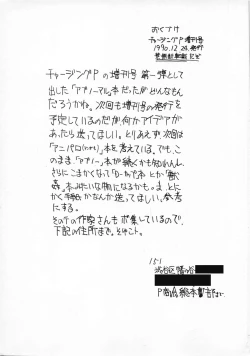 おくづけ
チャージングP 増刊号
1990.12.26.発行
チャージングPの増刊号 第一弾として
出した「アブノーマル」本だったがどんなもん
だろうかね。次回も増刊号の発行を
予定しているのだが、何かアイデアが
あったら送ってほしい。とりあえず次回は
「アニパロ(ハァト)」本を考えている。でも、こ
のまま、「アブノー」本が続くかも知れんし、
さらにこまかくなって「ロ
本
とか「獣
姦」本みたいな物になるかも。ま、とに
かく手紙かなんか送ってほしい。参考
にする。
その手の作家さんも募集しているので、
下記の住所まで。そゆこト。
151
渋谷区
P商会